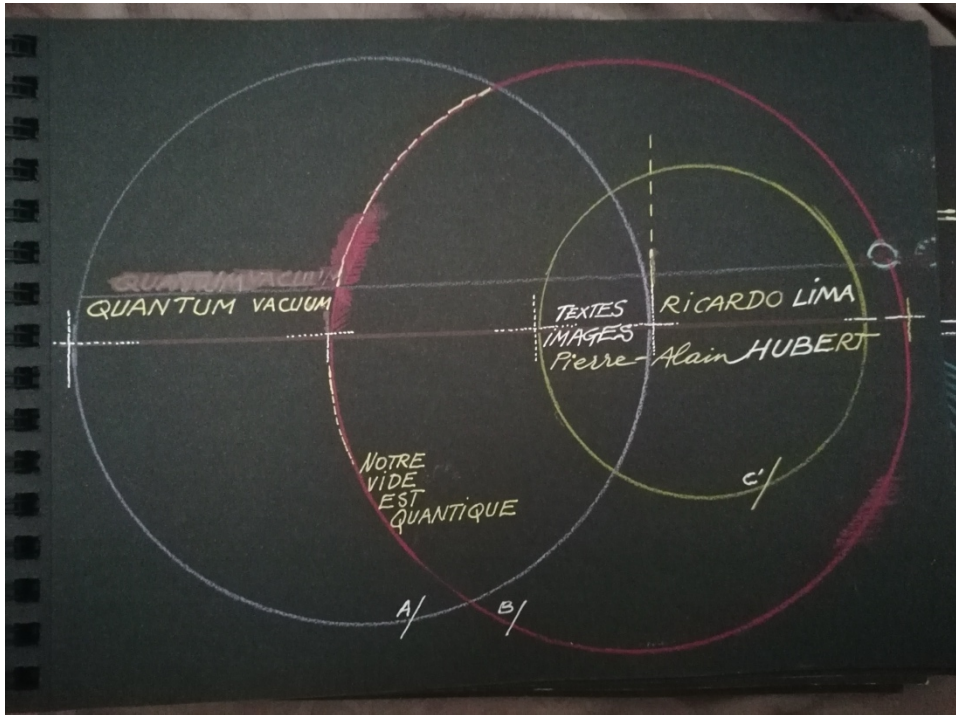 QUANTUM VACUUM
QUANTUM VACUUM
TEXTES RICARDO LIMA
IMAGES
Pierre-Alain HUBERT
NOTRE
VIDE
EST
QUANTIQUE
C'/
A/
B/